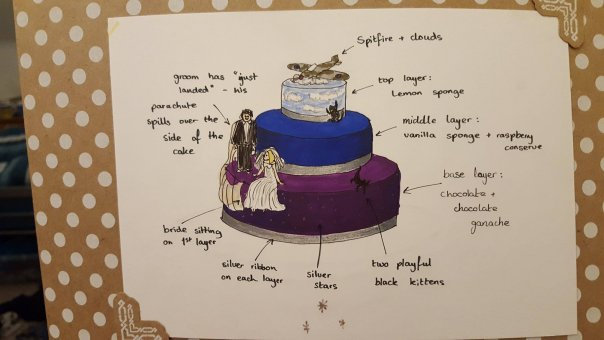 Spitfire + clouds
groom has "just
landed" - his
parachute
spills over the
side of the
cake
top layer:
Lemon sponge
middle layer:
vanilla sponge + raspberry
conserve
base layer:
chocolate +
chocolate
ganache
bride sitting
on 1st layer
silver ribbon
on each layer
silver
stars
two playful
black kittens